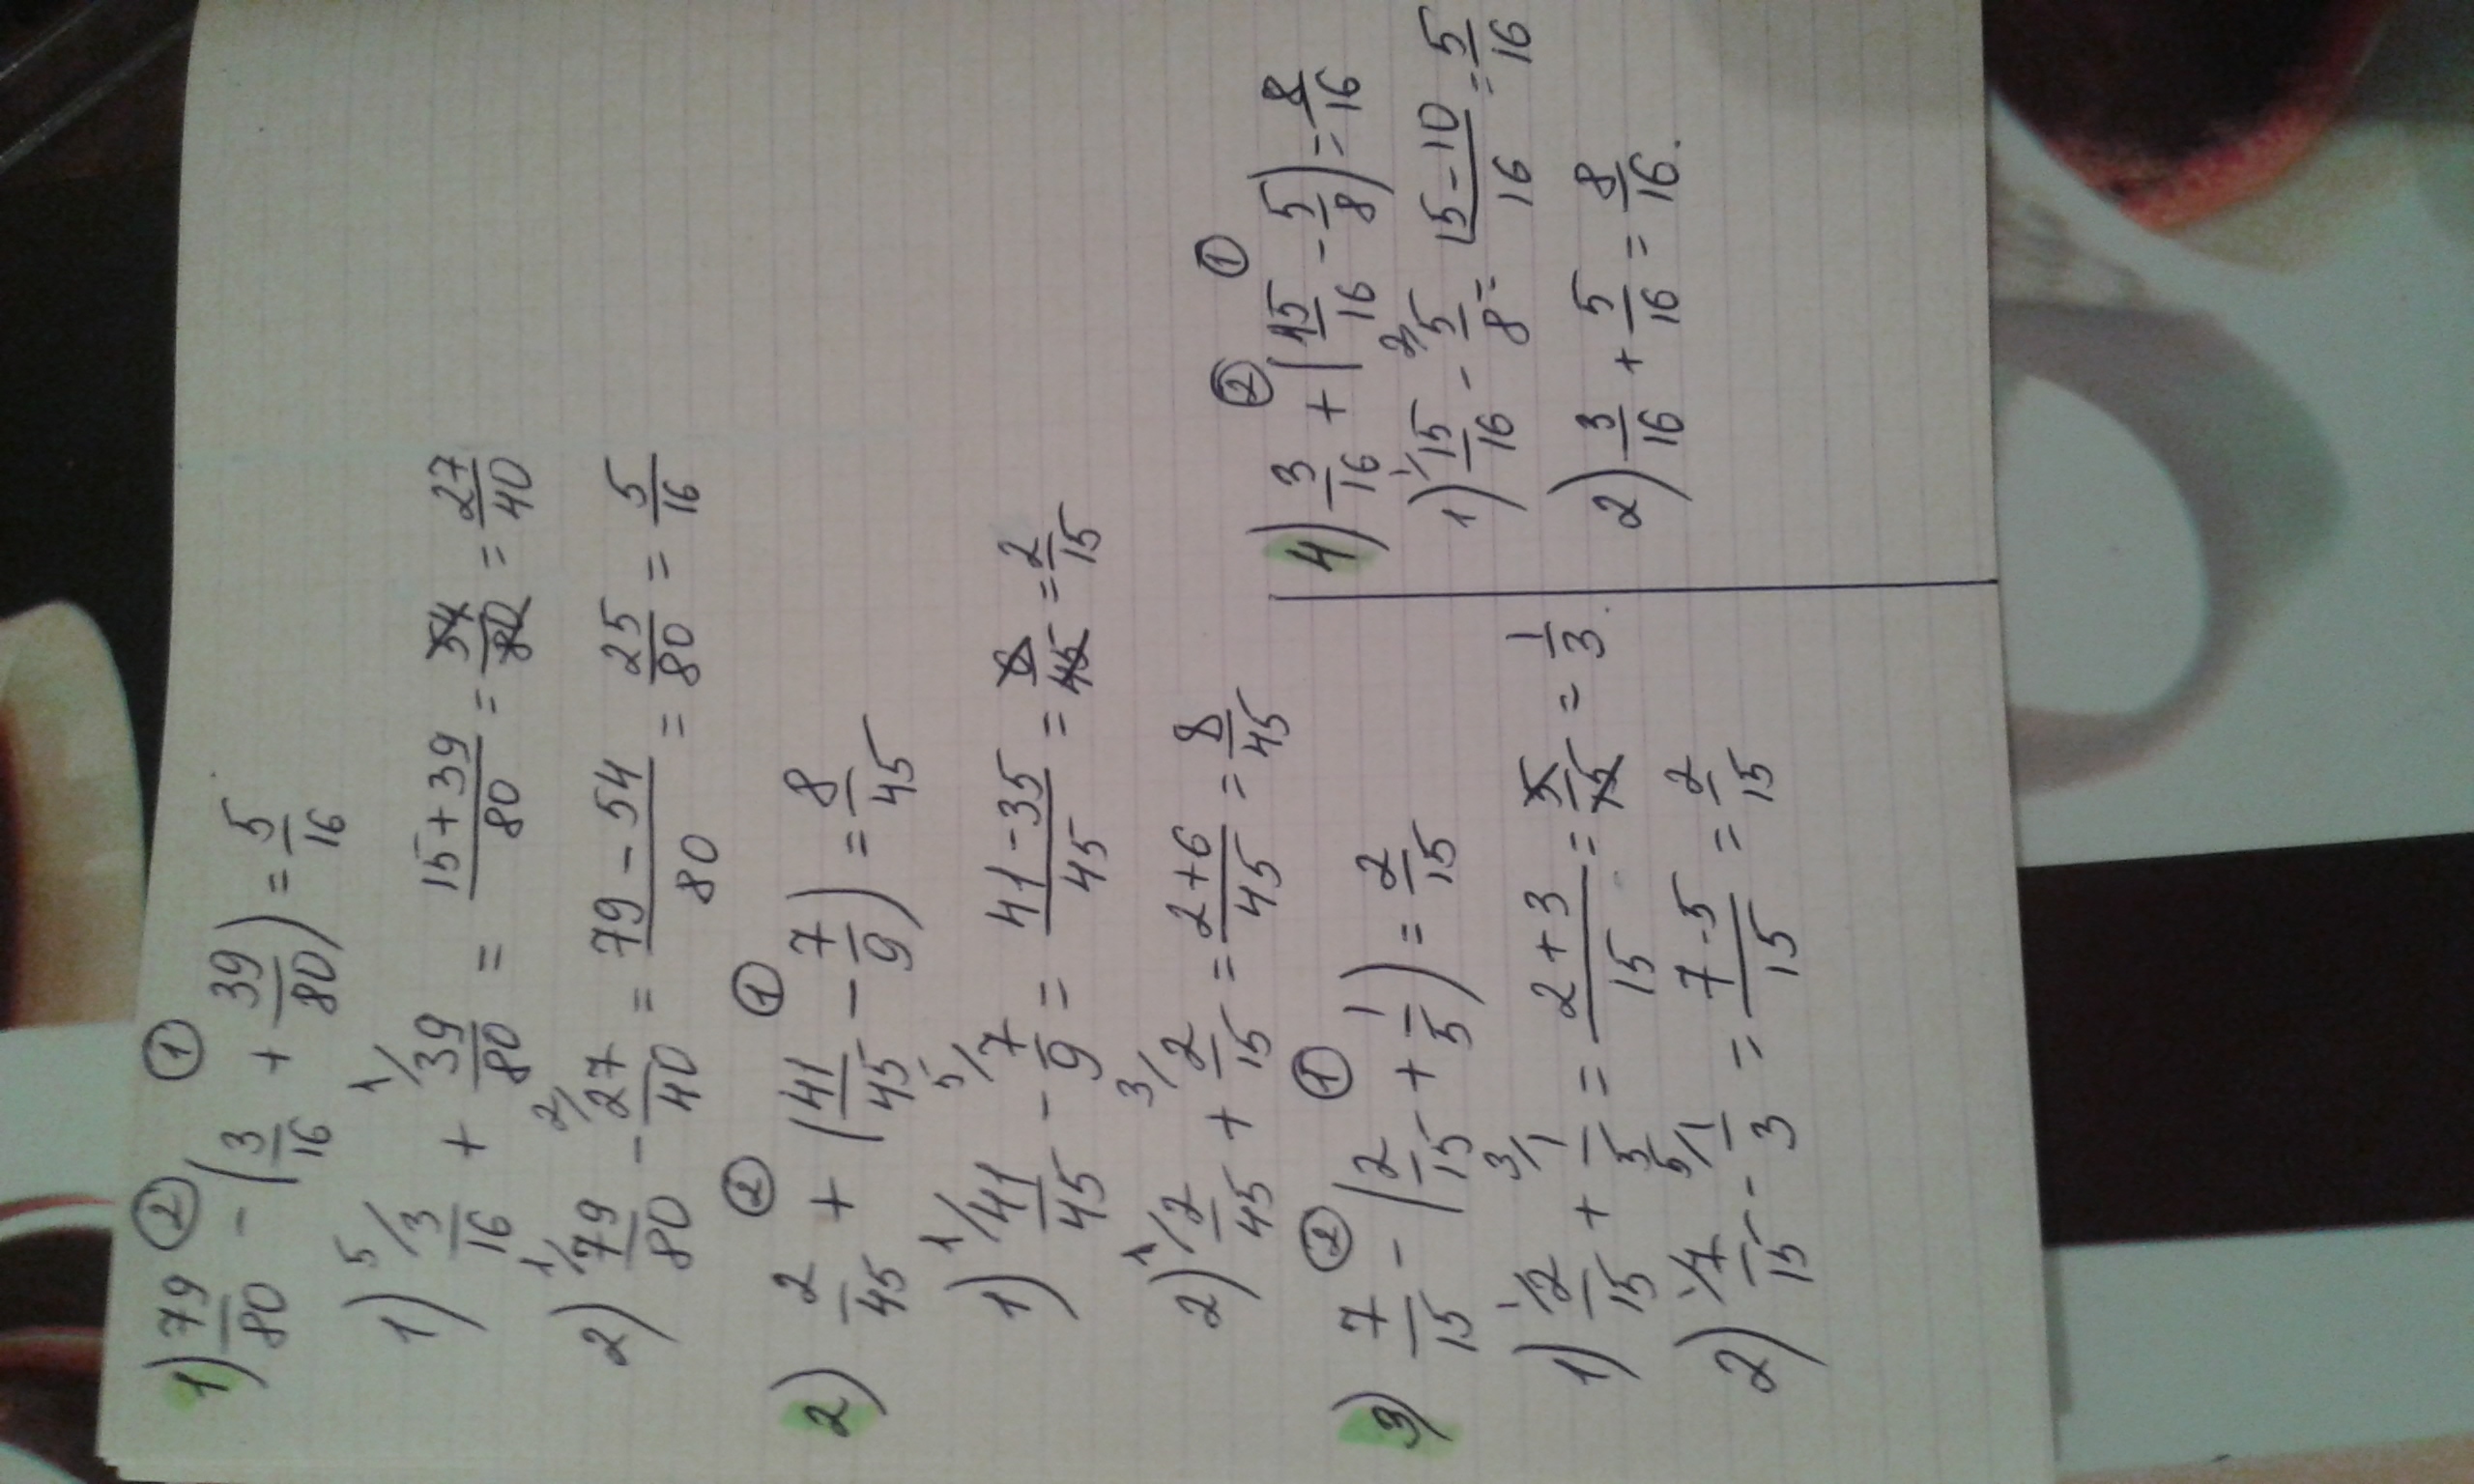 1) 79/80 - (3/16 + 39/80) = 5/16
② ①
1) 5/ 3/16 + 1/ 39/80 = (15+39)/80 = 54/80 = 27/40
2) 1/ 79/80 - 2/ 27/40 = (79-54)/80 = 25/80 = 5/16
② ①
2) 2/45 + (41/45 - 7/9) = 8/45
1) 1/ 41/45 - 5/ 7/9 = (41-35)/45 = 6/45 = 2/15
2) 1/ 2/45 + 3/ 2/15 = (2+6)/45 = 8/45
② ①
3) 7/15 - (2/15 + 1/5) = 2/15
1) 1/ 2/15 + 3/ 1/5 = (2+3)/15 = 5/15 = 1/3.
2) 1/ 7/15 - 5/ 1/3 = (7-5)/15 = 2/15
② ①
4) 3/16 + (15/16 - 5/8) = 8/16
1) 1/ 15/16 - 2/ 5/8 = (15-10)/16 = 5/16
2) 3/16 + 5/16 = 8/16.